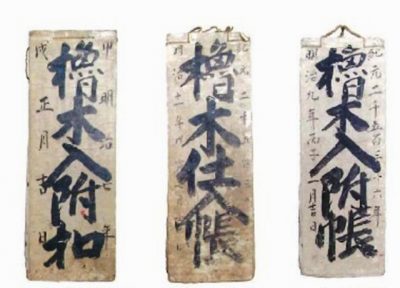 紀元二千五百三十六年
櫓木入附帳
明治九年丙子一月吉日
紀元二千五
櫓木仕入帳
明治十一年
甲明治七年
櫓木入附扣
戌正月吉日